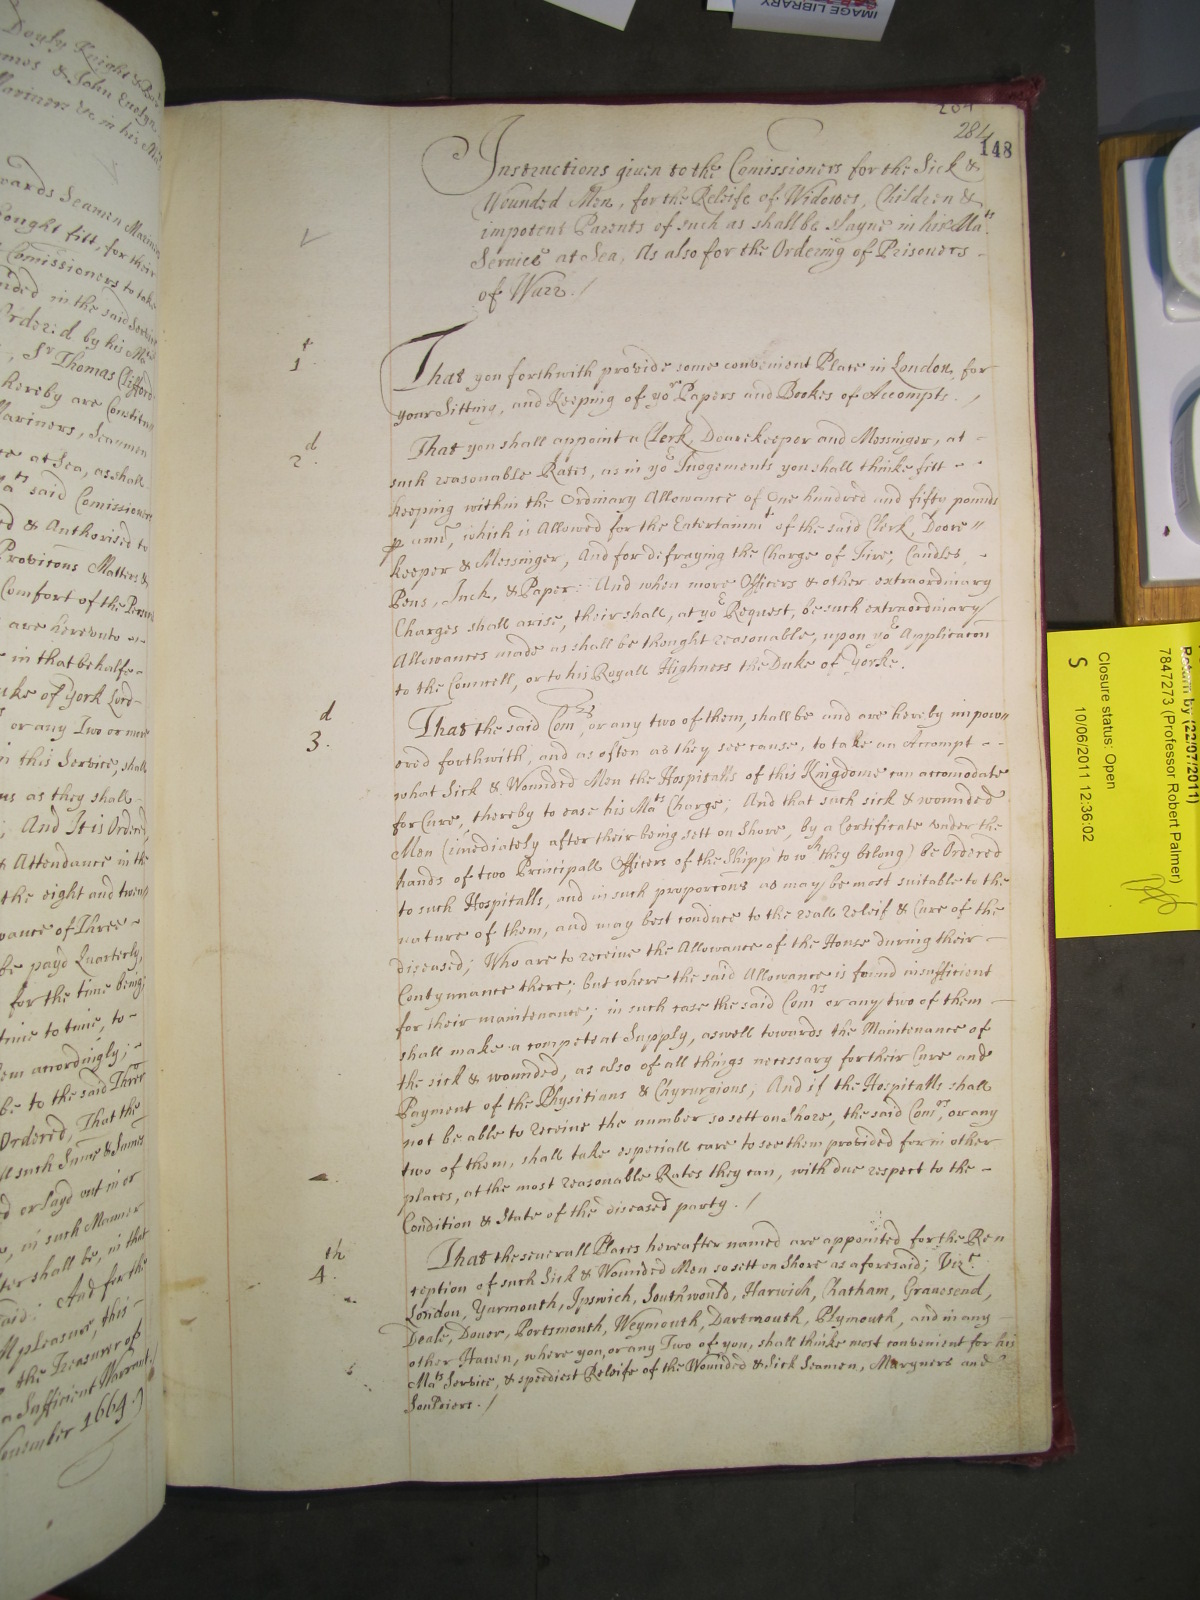 Doyly Knight & Bar
& John Evelyn
Mariners &c in his Ma
wards Seamen Marin
thought fitt, for their
Comissioners to take
nded in the said Servi
Order:d by his Ma
, Sr Thomas Clifford
hereby are Constitu
Mariners, Seamen
at Sea, as shall
said Comissioners
ed & Authorised to
Provisions Matters &
Comfort of the Person
are hereunto
in that behalfe
uke of York Lord
or any Two or more
in this Service, shall
as they shall
; And It is Ordered
Attendance in the
the eight and twen
wance of Three
be payd Quarterly,
for the time being
time to time, to
em accordingly;
be to the said Three
Ordered, That the
such Sume & Sumes
or layd out in or
, in such Manner
ter shall be, in that
And for the
pleasure, this
the Treasurer of
a Sufficient Warrant
ovember 1664.)
284
148
Instructions given to the Comissioners for the Sick &
Wounded Men, for the Releife of Widowes, Children &
impotent Parents of such as shall be slayne in his Mats
Service at Sea, As also for the Ordering of Prisoners -
of Warr. /
1t
That you forthwith provide some convenient Place in London, for
your Sitting, and Keeping of yor Papers and Bookes of Accompts. /
2d
That you shall appoint a Clerk, Doorekeeper and Messinger, at -
such reasonable Rates, as in yor Judgements you shall thinke fitt - -
keeping within the Ordinary Allowance of One hundred and fifty pounds
p ann, which is Allowed for the Entertainmt of the said Clerk, Doore //
keeper & Messinger, And for defraying the Charge of Fire, Candles, -
Pens, Inck, & Paper: And when more Officers & other extraordinary
Charges shall arise, their shall, at yor Request, be such extraordinary
Allowances made as shall be thought reasonable, upon yor Applicacon
to the Councell, or to his Royall Highness the Duke of Yorke.
3d
That the said Comrs, or any two of them, shall be and are hereby impow //
ered forthwith, and as often as they see cause, to take an Accompt - -
what Sick & Wounded Men the Hospitalls of this Kingdome can accomodate
for Cure, thereby to ease his Mats Charge; And that such sick & wounded
Men (imediately after their being sett on Shore, by a Certificate under the
hands of two Principall Officers of the Shipp to wch they belong) be Ordered
to such Hospitalls, and in such proporcons as may be most suitable to the
nature of them, and may best conduce to the reall releif & Cure of the
diseased; Who are to receive the Allowance of the House during their -
Contynuance there; but where the said Allowance is found insufficient
for their maintenance; in such case the said Comrs or any two of them -
shall make a competent Supply, aswell towards the Maintenance of
the sick & wounded, as also of all things necessary for their Cure and
Payment of the Physitians & Chyrurgions; And if the Hospitalls shall
not be able to receive the number so sett on Shore, the said Comrs, or any
two of them, shall take especiall care to see them provided for in other
places, at the most reasonable Rates they can, with due respect to the -
Condition & State of the diseased party. /
4th
That the severall Places hereafter named are appointed for the Re
ception of such Sick & Wounded Men so sett on Shore as aforesaid; Vizt.
London, Yarmouth, Ipswich, Southwould, Harwich, Chatham, Gravesend,
Deale, Dover, Portsmouth, Weymouth, Dartmouth, Plymouth, and in any -
other Haven, where you, or any Two of you, shall thinke most convenient for his
Mats Service, & speediest Releife of the Wounded & Sick Seamen, Maryners and
Souldiers. /
IMAGE LIBRARY
Return by (22/07/2011)
7847273 (Professor Robert Palmer)
Closure status: Open
10/06/2011 12:36:02
S